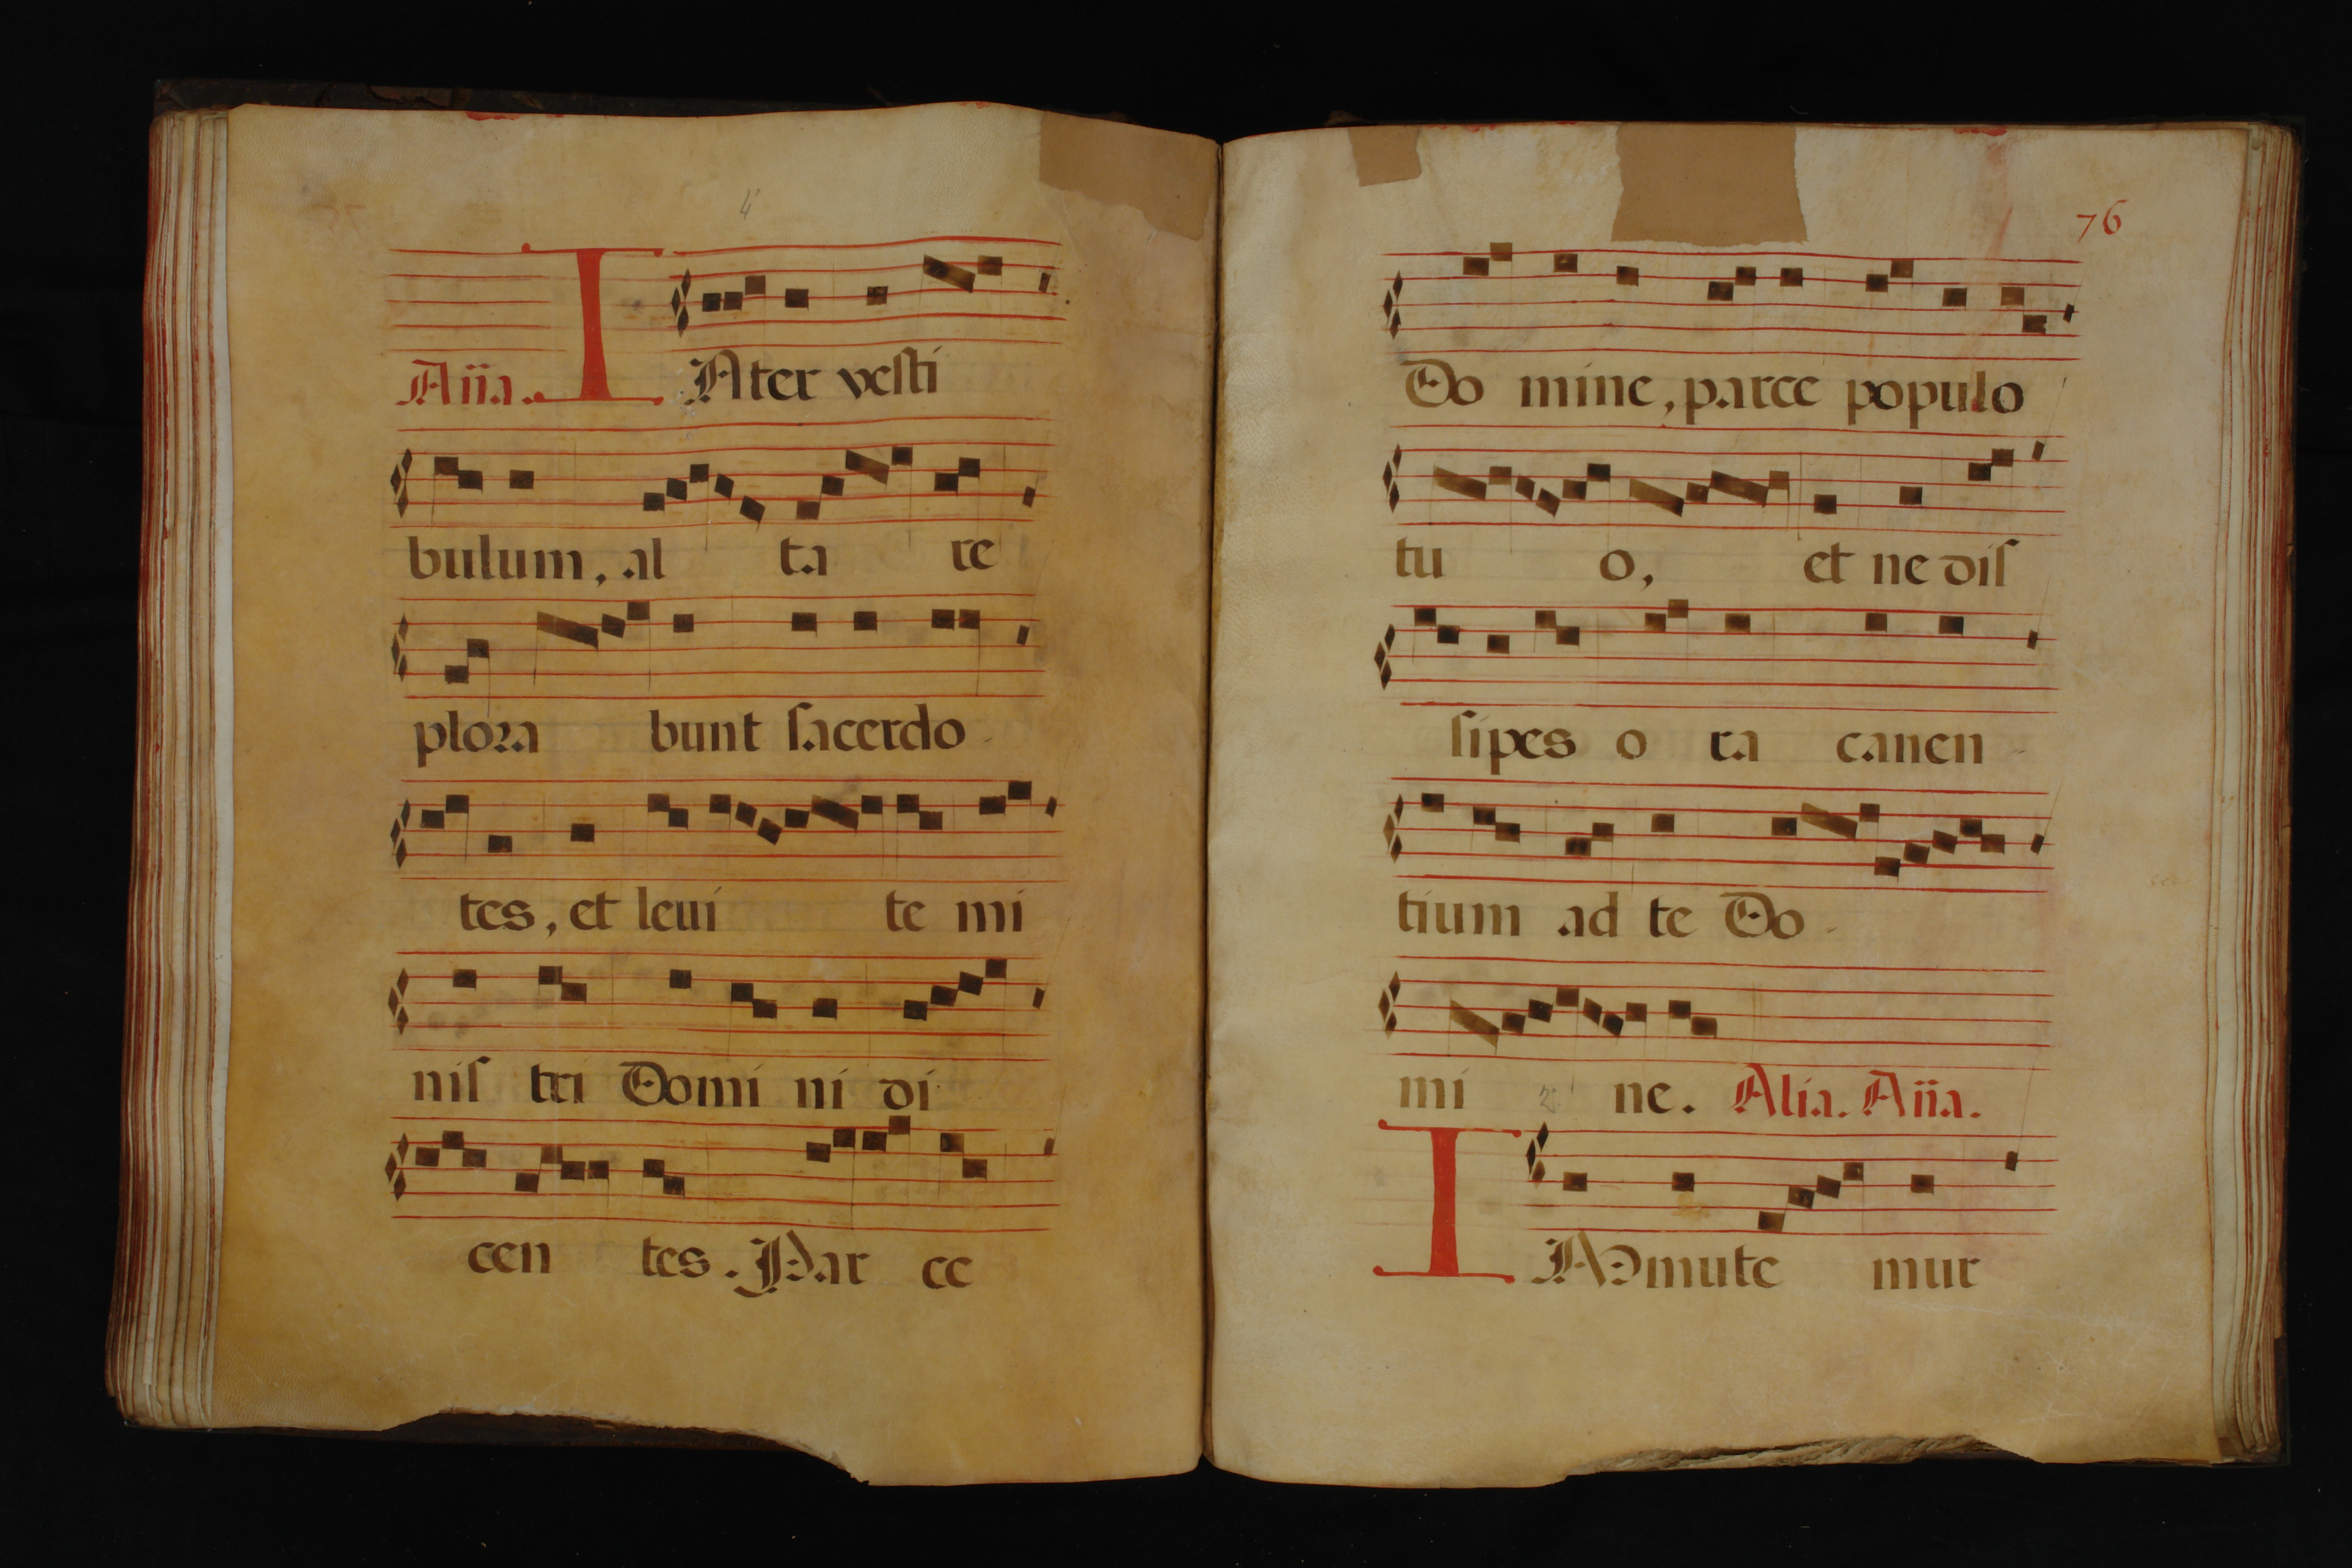 4
Aña. INter vesti
bulum, al ta re
plora bunt sacerdo-
tes, et levi te mi
nis tri Domi ni di
cen tes. Par ce
76
Do mine, parce populo
tu o, et ne dis
sipes o ra canen-
tium ad te Do-
mi ne. Alia. Aña.
IMmute mur